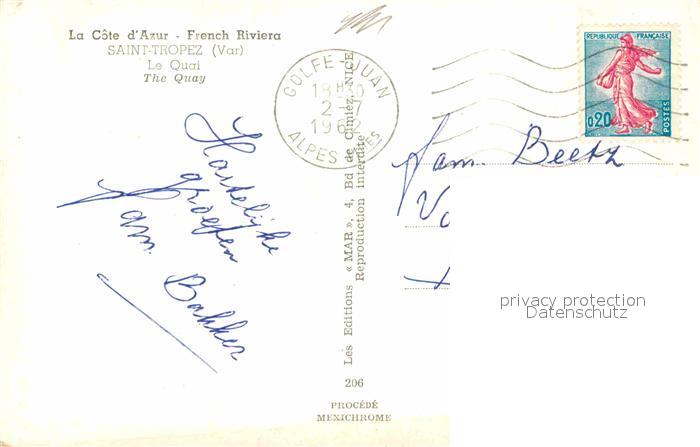 La Côte d'Azur - French Riviera
SAINT-TROPEZ (Var)
Le Quai
The Quay
Hartelijke
groeten
Fam. Bakker
Les Editions « MAR », 4, Bd de Cimiez, NICE
Reproduction interdite
206
PROCÉDÉ
MEXICHROME
GOLFE-JUAN
ALPES
REPUBLIQUE FRANÇAISE
0,20
POSTES
Fam. Beeth
privacy protection
Datenschutz